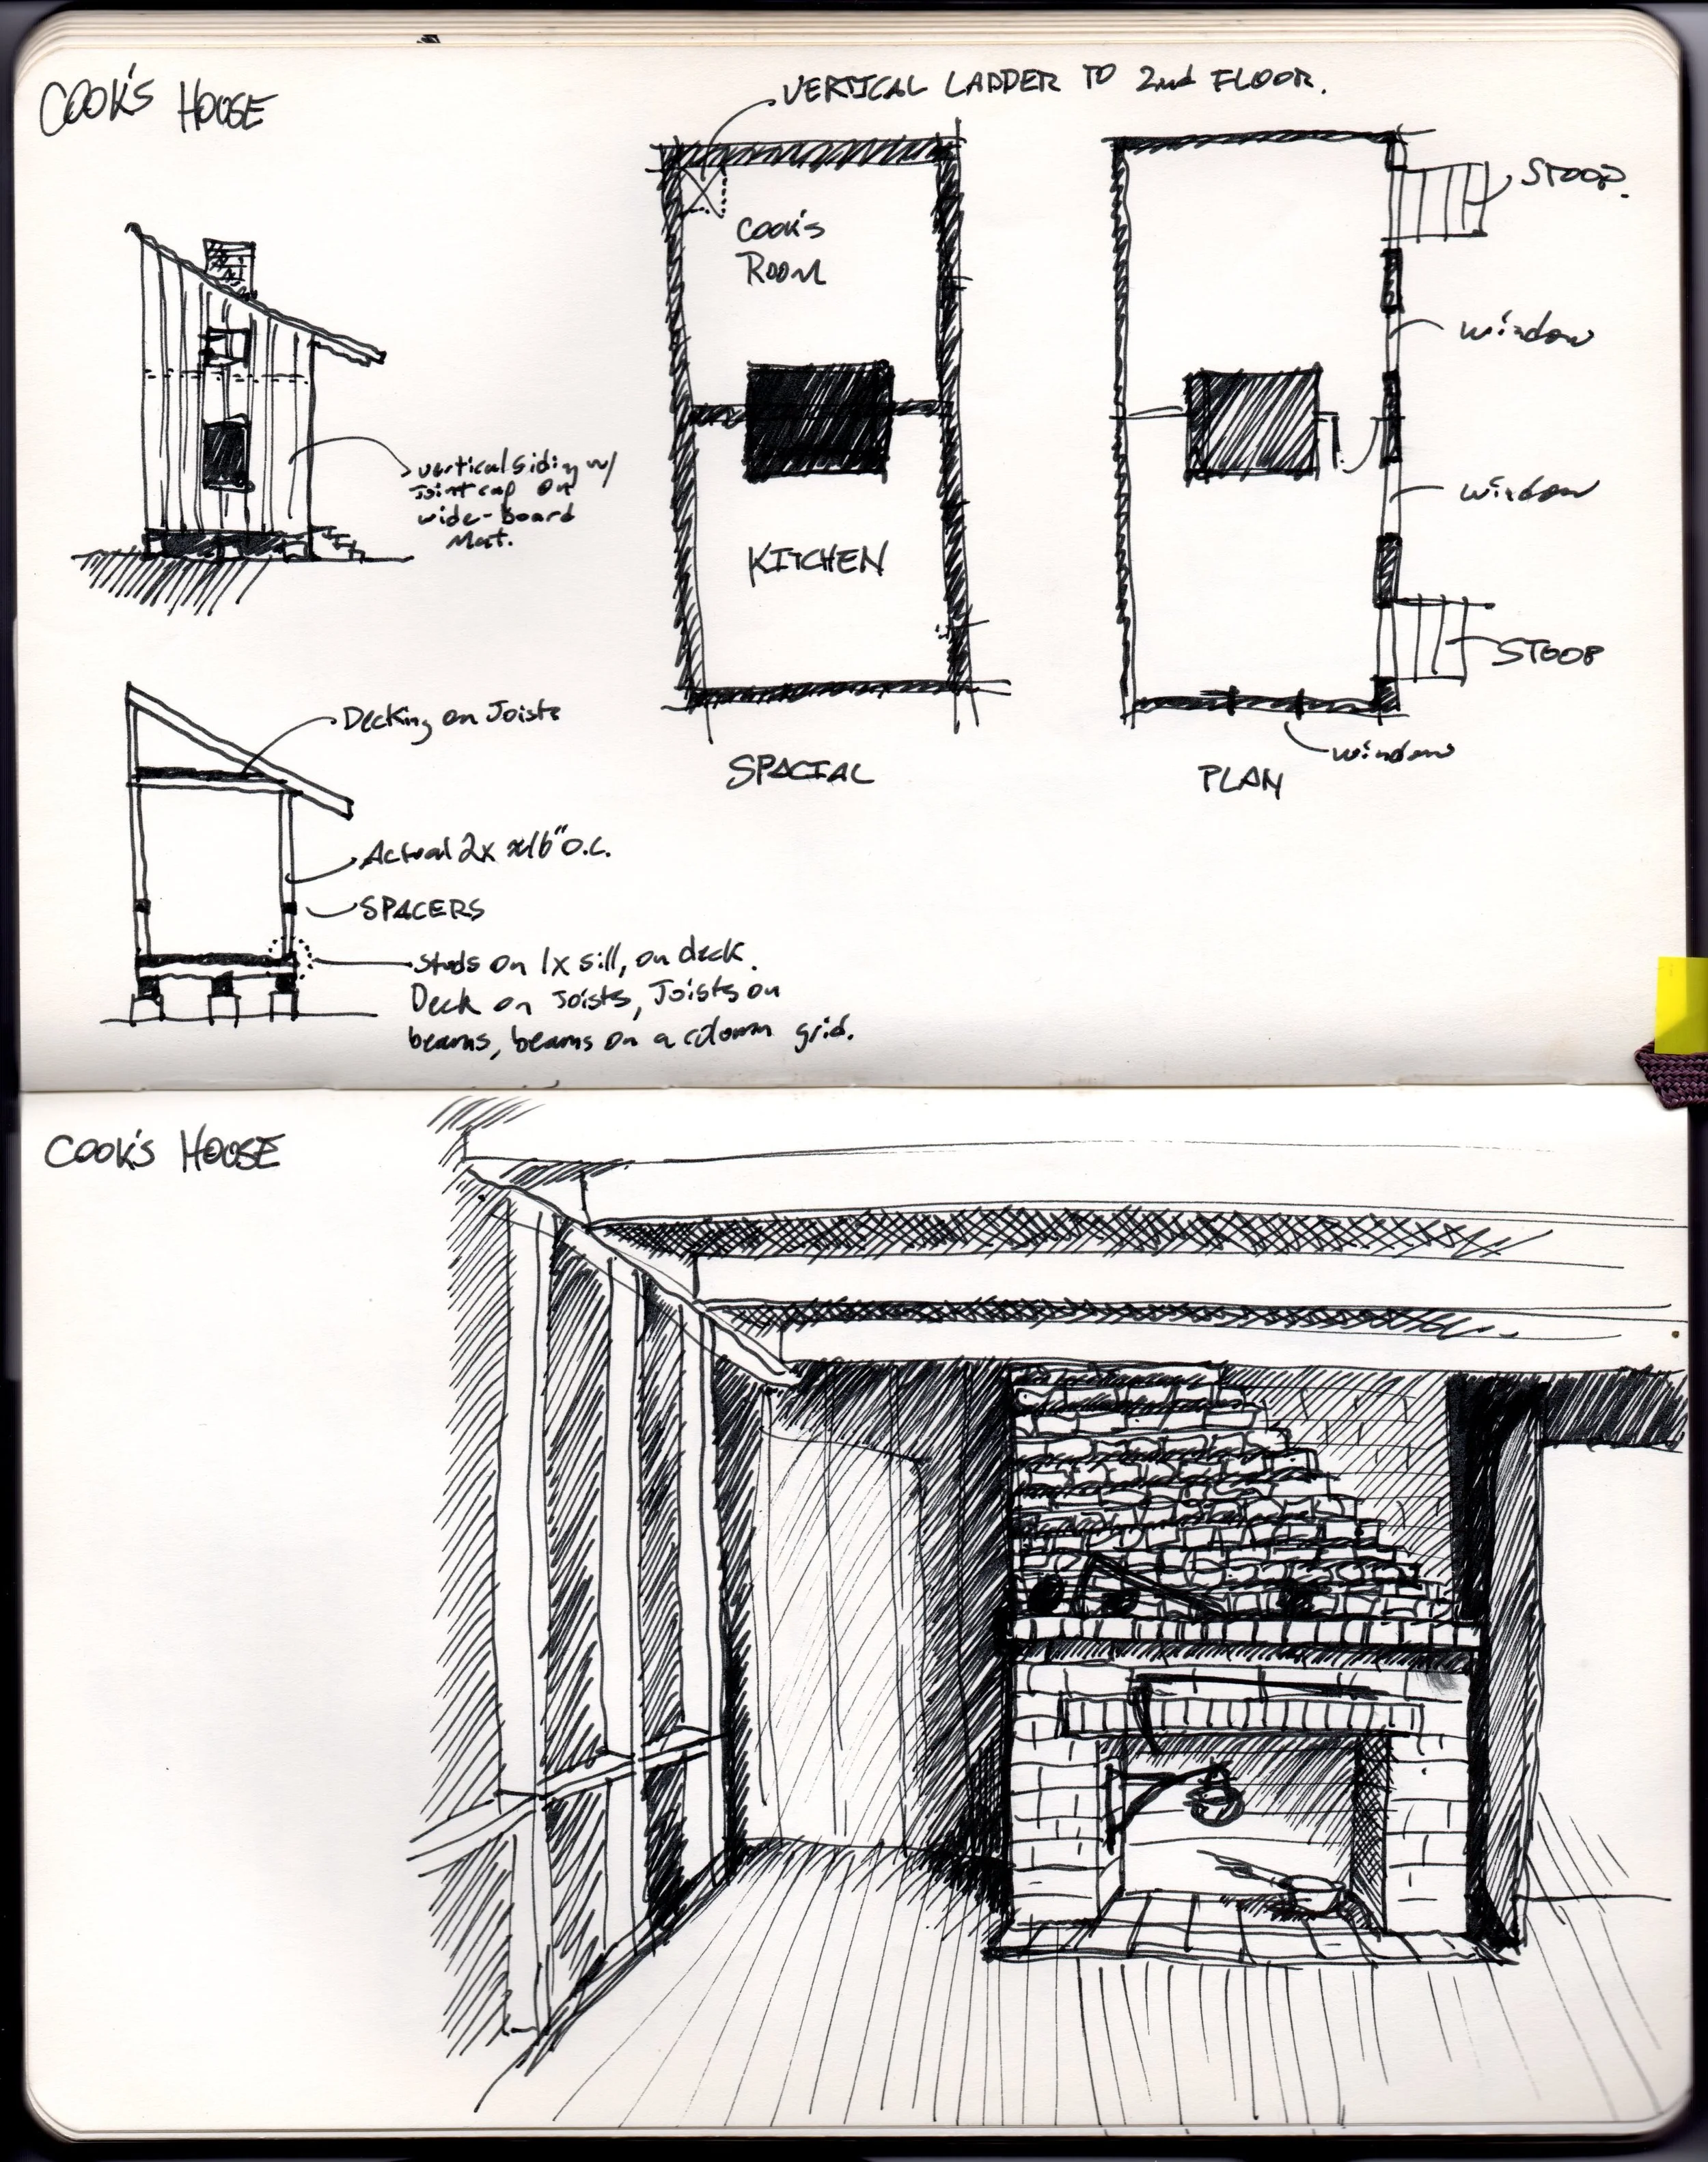 COOK'S HOUSE
VERTICAL LADDER TO 2nd FLOOR.
STOOP.
COOK'S
ROOM
window
vertical siding w/
Joint cap on
wide-board
Mat.
window
KITCHEN
STOOP
Decking on Joists
window
SPACIAL
PLAN
Actual 2x 16" O.C.
SPACERS
Studs on 1x sill, on deck.
Deck on Joists, Joists on
beams, beams on a column grid.
COOK'S HOUSE